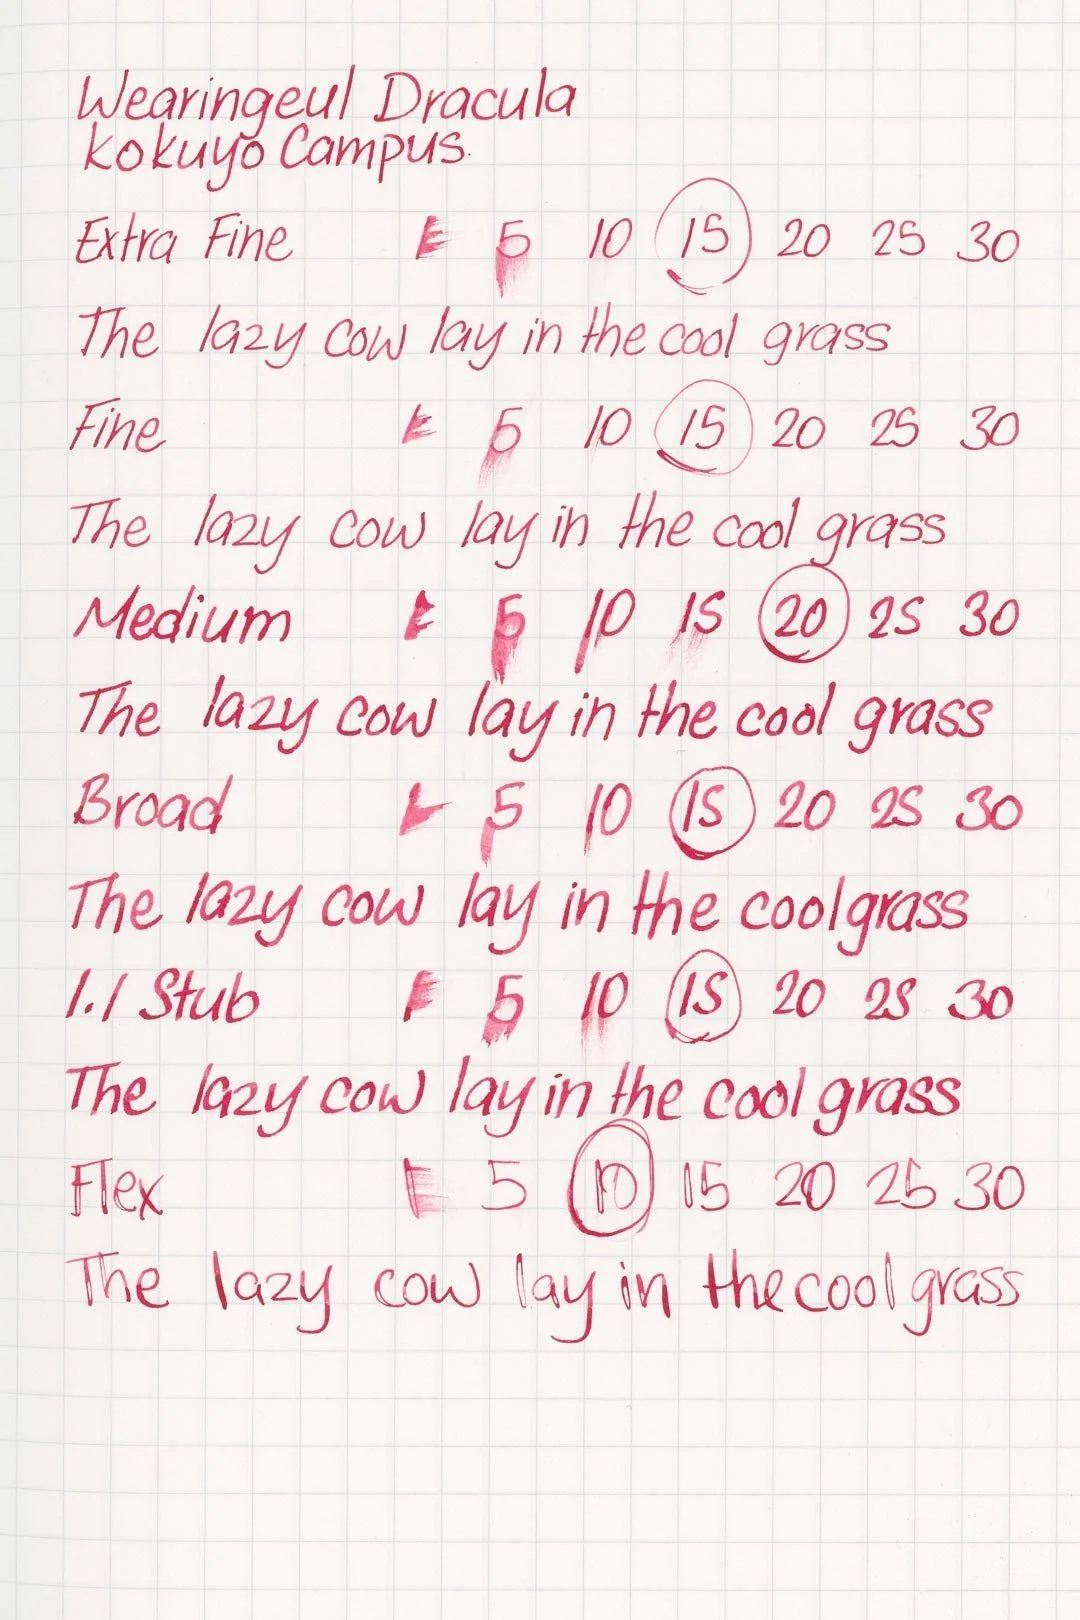 Wearingeul Dracula
Kokuyo Campus
Extra Fine 5 10 15 20 25 30
The lazy cow lay in the cool grass
Fine 5 10 15 20 25 30
The lazy cow lay in the cool grass
Medium 5 10 15 20 25 30
The lazy cow lay in the cool grass
Broad 5 10 15 20 25 30
The lazy cow lay in the cool grass
1.1 Stub 5 10 15 20 25 30
The lazy cow lay in the cool grass
Flex 5 10 15 20 25 30
The lazy cow lay in the cool grass